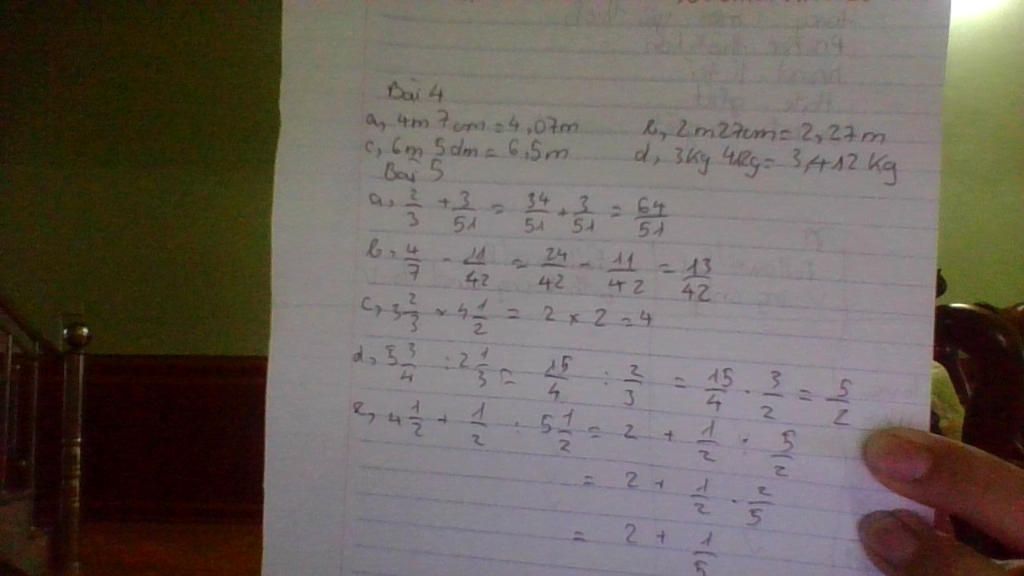 Bài 4
a, 4m 7cm = 4,07m b, 2m27cm = 2,27m
c, 6m 5dm = 6,5m d, 3kg 412g = 3,412 kg
Bài 5
a, 2/3 + 3/51 = 34/51 + 3/51 = 64/51
b, 4/7 - 11/42 = 24/42 - 11/42 = 13/42
c, 3 2/3 × 4 1/2 = 2 × 2 = 4
d, 5 3/4 : 2 1/3 = 15/4 : 2/3 = 15/4 . 3/2 = 5/2
e, 4 1/2 + 1/2 : 5 1/2 = 2 + 1/2 : 5/2
= 2 + 1/2 . 2/5
= 2 + 1/5